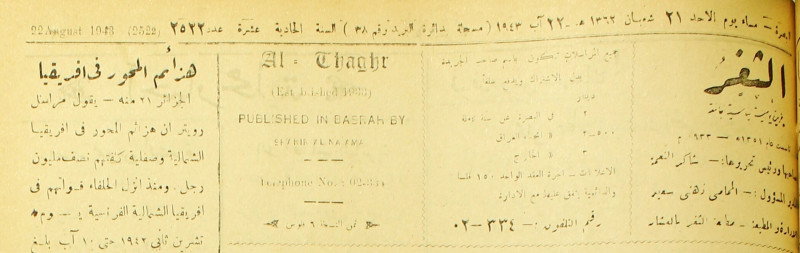 البصرة — مساء يوم الاحد ٢١ شعبان ١٣٦٢ هـ — ٢٢ آب ١٩٤٣ (مسجلة بدائرة البريد رقم ٣٨) السنة الحادية عشرة عدد ٢٥٢٢ (2522) 22 August 1943
الثغر
يومية سياسية جامعة
تأسست عام ١٣٥١ هـ — ٩٣٣ م
صاحبها ورئيس تحريرها: — شاكر النعمة
المدير المسؤول: — المحامي ذهني سعيد
الادارة والمطبعة — مطبعة الثغر بالعشار
جميع المراسلات تكون باسم صاحب الجريدة
بدل الاشتراك ويدفع سلفاً
دينار
٢ في البصرة عن سنة كاملة
٢٥٠٠ انحاء العراق
٣ الخارج
الاعلانات — اجرة العقد الواحد ١٥٠ فلساً
والدائمية يتفق عليها مع الادارة
رقم التلفون: — ٣٣٤ — ٠٢
Al - Thaghr
(Established 1933)
PUBLISHED IN BASRAH BY
Telephone No. : 02-334
ثمن النسخة ٦ فلوس
هزائم المحور في افريقيا
الجزائر ٢١ منه — يقول مراسل
رويتر ان هزائم المحور في افريقيا
الشمالية وصقلية كلفتهم نصف مليون
رجل. ومنذ انزل الحلفاء قواتهم في
افريقيا الشمالية الفرنسية في — يوم
تشرين ثاني ١٩٤٢ حتى ١٠ آب بلغ